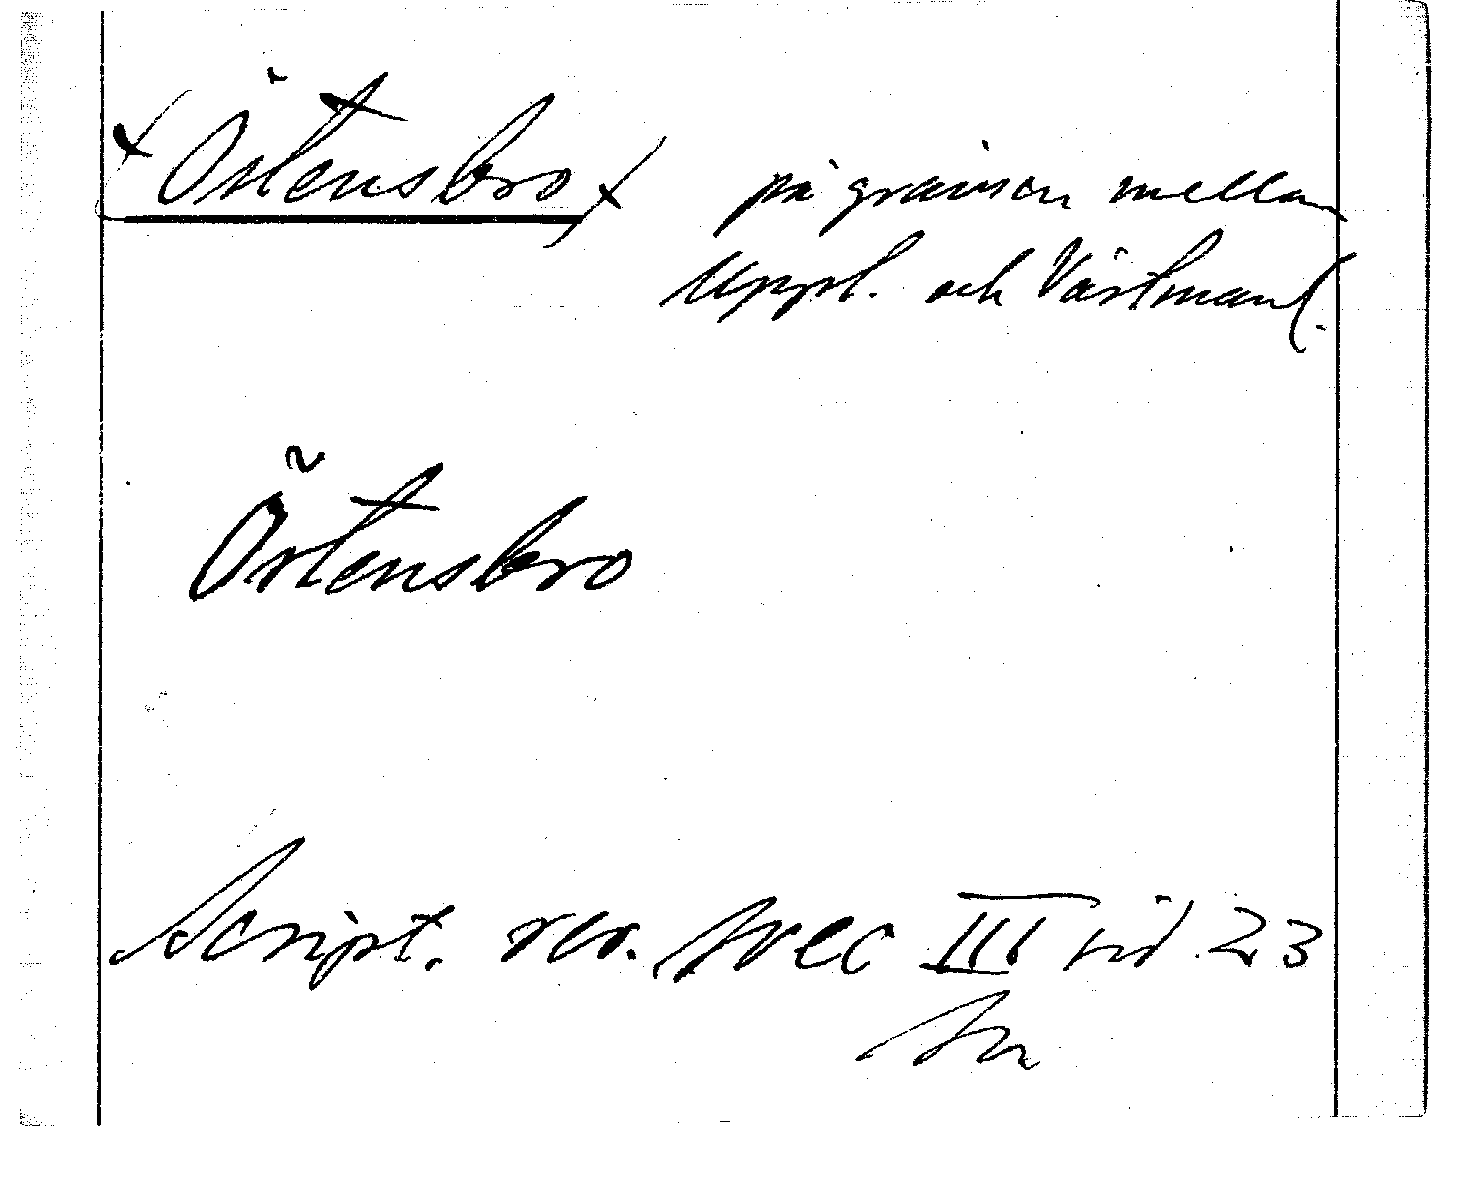 Östensbro på gränsen mellan
Uppl. och Västmanl.
Östensbro
Script. rer. svec III sid 23